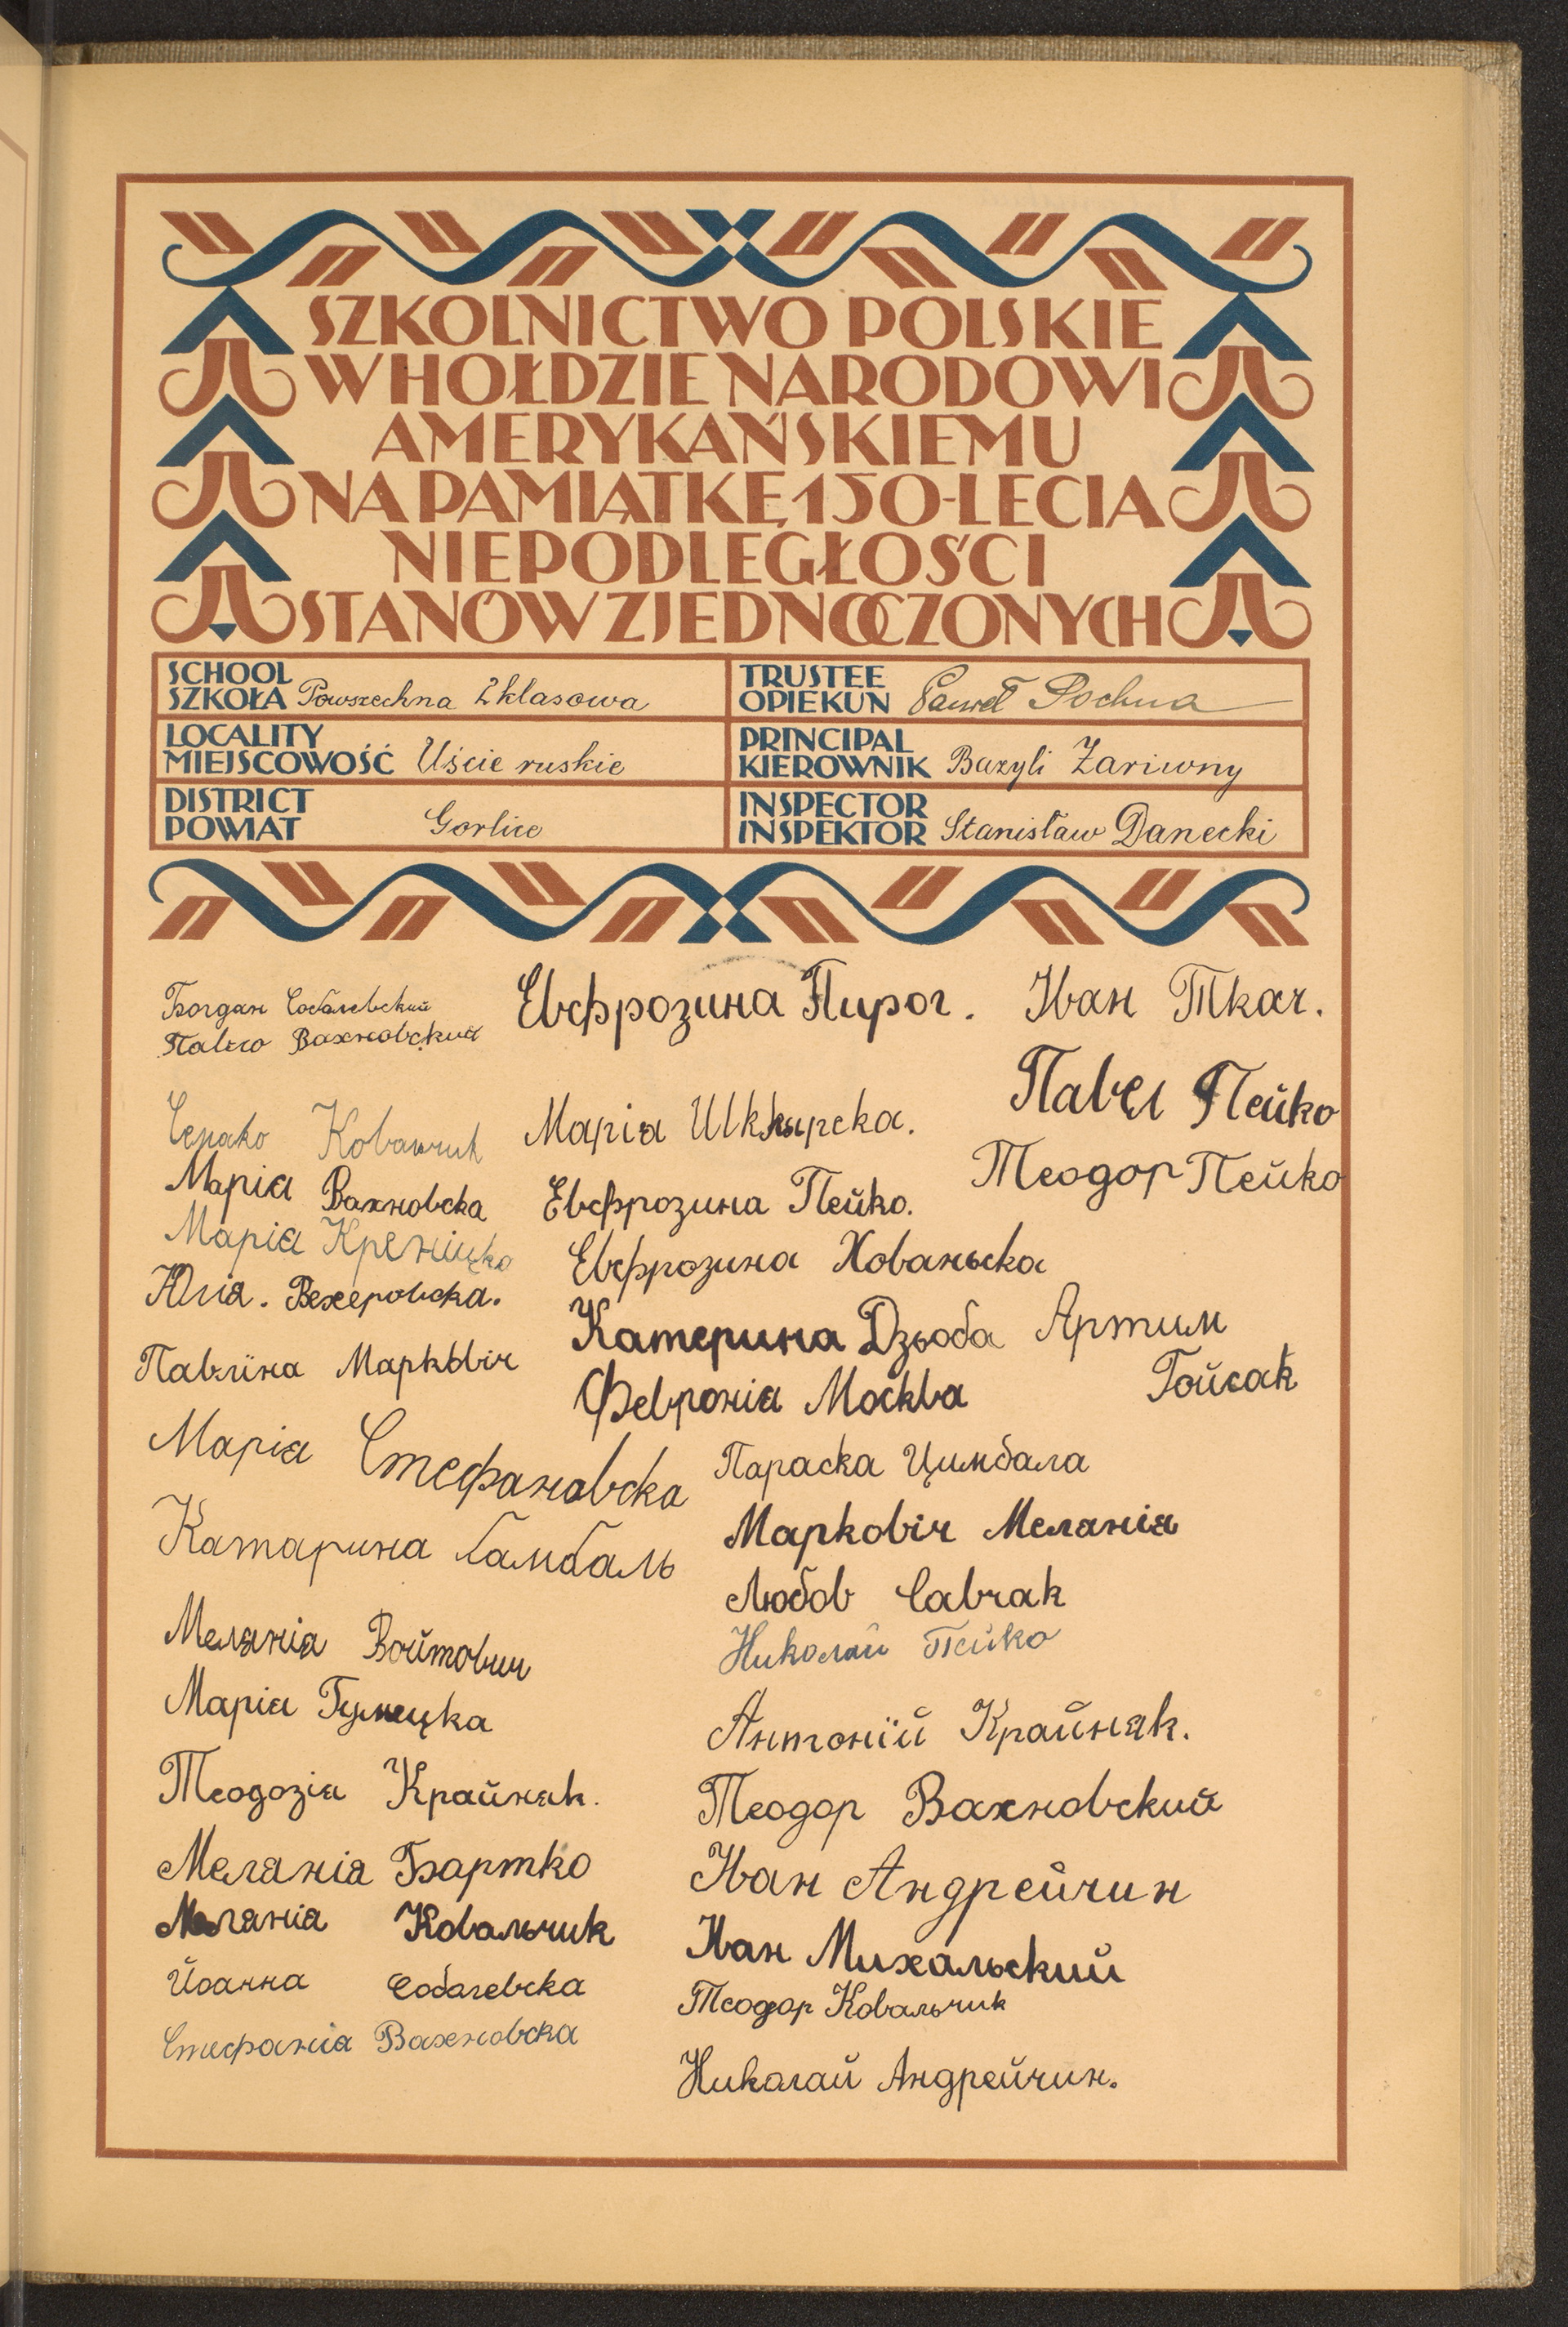 SZKOLNICTWO POLSKIE
W HOŁDZIE NARODOWI
AMERYKAŃSKIEMU
NA PAMIĄTKĘ 150-LECIA
NIEPODLEGŁOŚCI
STANÓW ZJEDNOCZONYCH
SCHOOL
SZKOŁA Powszechna 2 klasowa
TRUSTEE
OPIEKUN Paweł Pochna
LOCALITY
MIEJSCOWOŚĆ Uście ruskie
PRINCIPAL
KIEROWNIK Bazyli Zariwny
DISTRICT
POWIAT Gorlice
INSPECTOR
INSPEKTOR Stanisław Danecki
Богдан Собалевский
Павло Вахновский
Ковальчик
Марія Вахновска
Марія Креніцка
Юлія. Вехеровска.
Павліна Марковіч
Марія Стефановска
Катарина Гамбаль
Меланія Войтович
Марія Гумецка
Теодозія Крайняк.
Меланія Бартко
Меланія Ковальчик
Йоанна Собалевска
Стефанія Вахновска
Евфрозина Пирог.
Марія
Евфрозина Пейко.
Евфрозина Хованьска
Катерина Дзьоба
Февронія Москва
Параска Цимбала
Марковіч Меланія
Любов Савчак
Николай Пейко
Антоній Крайняк.
Теодор Вахновский
Іван Андрейчин
Іван Михальский
Теодор Ковальчик
Николай Андрейчин.
Іван Ткач.
Павел Пейко
Теодор Пейко
Артим
Гойсак